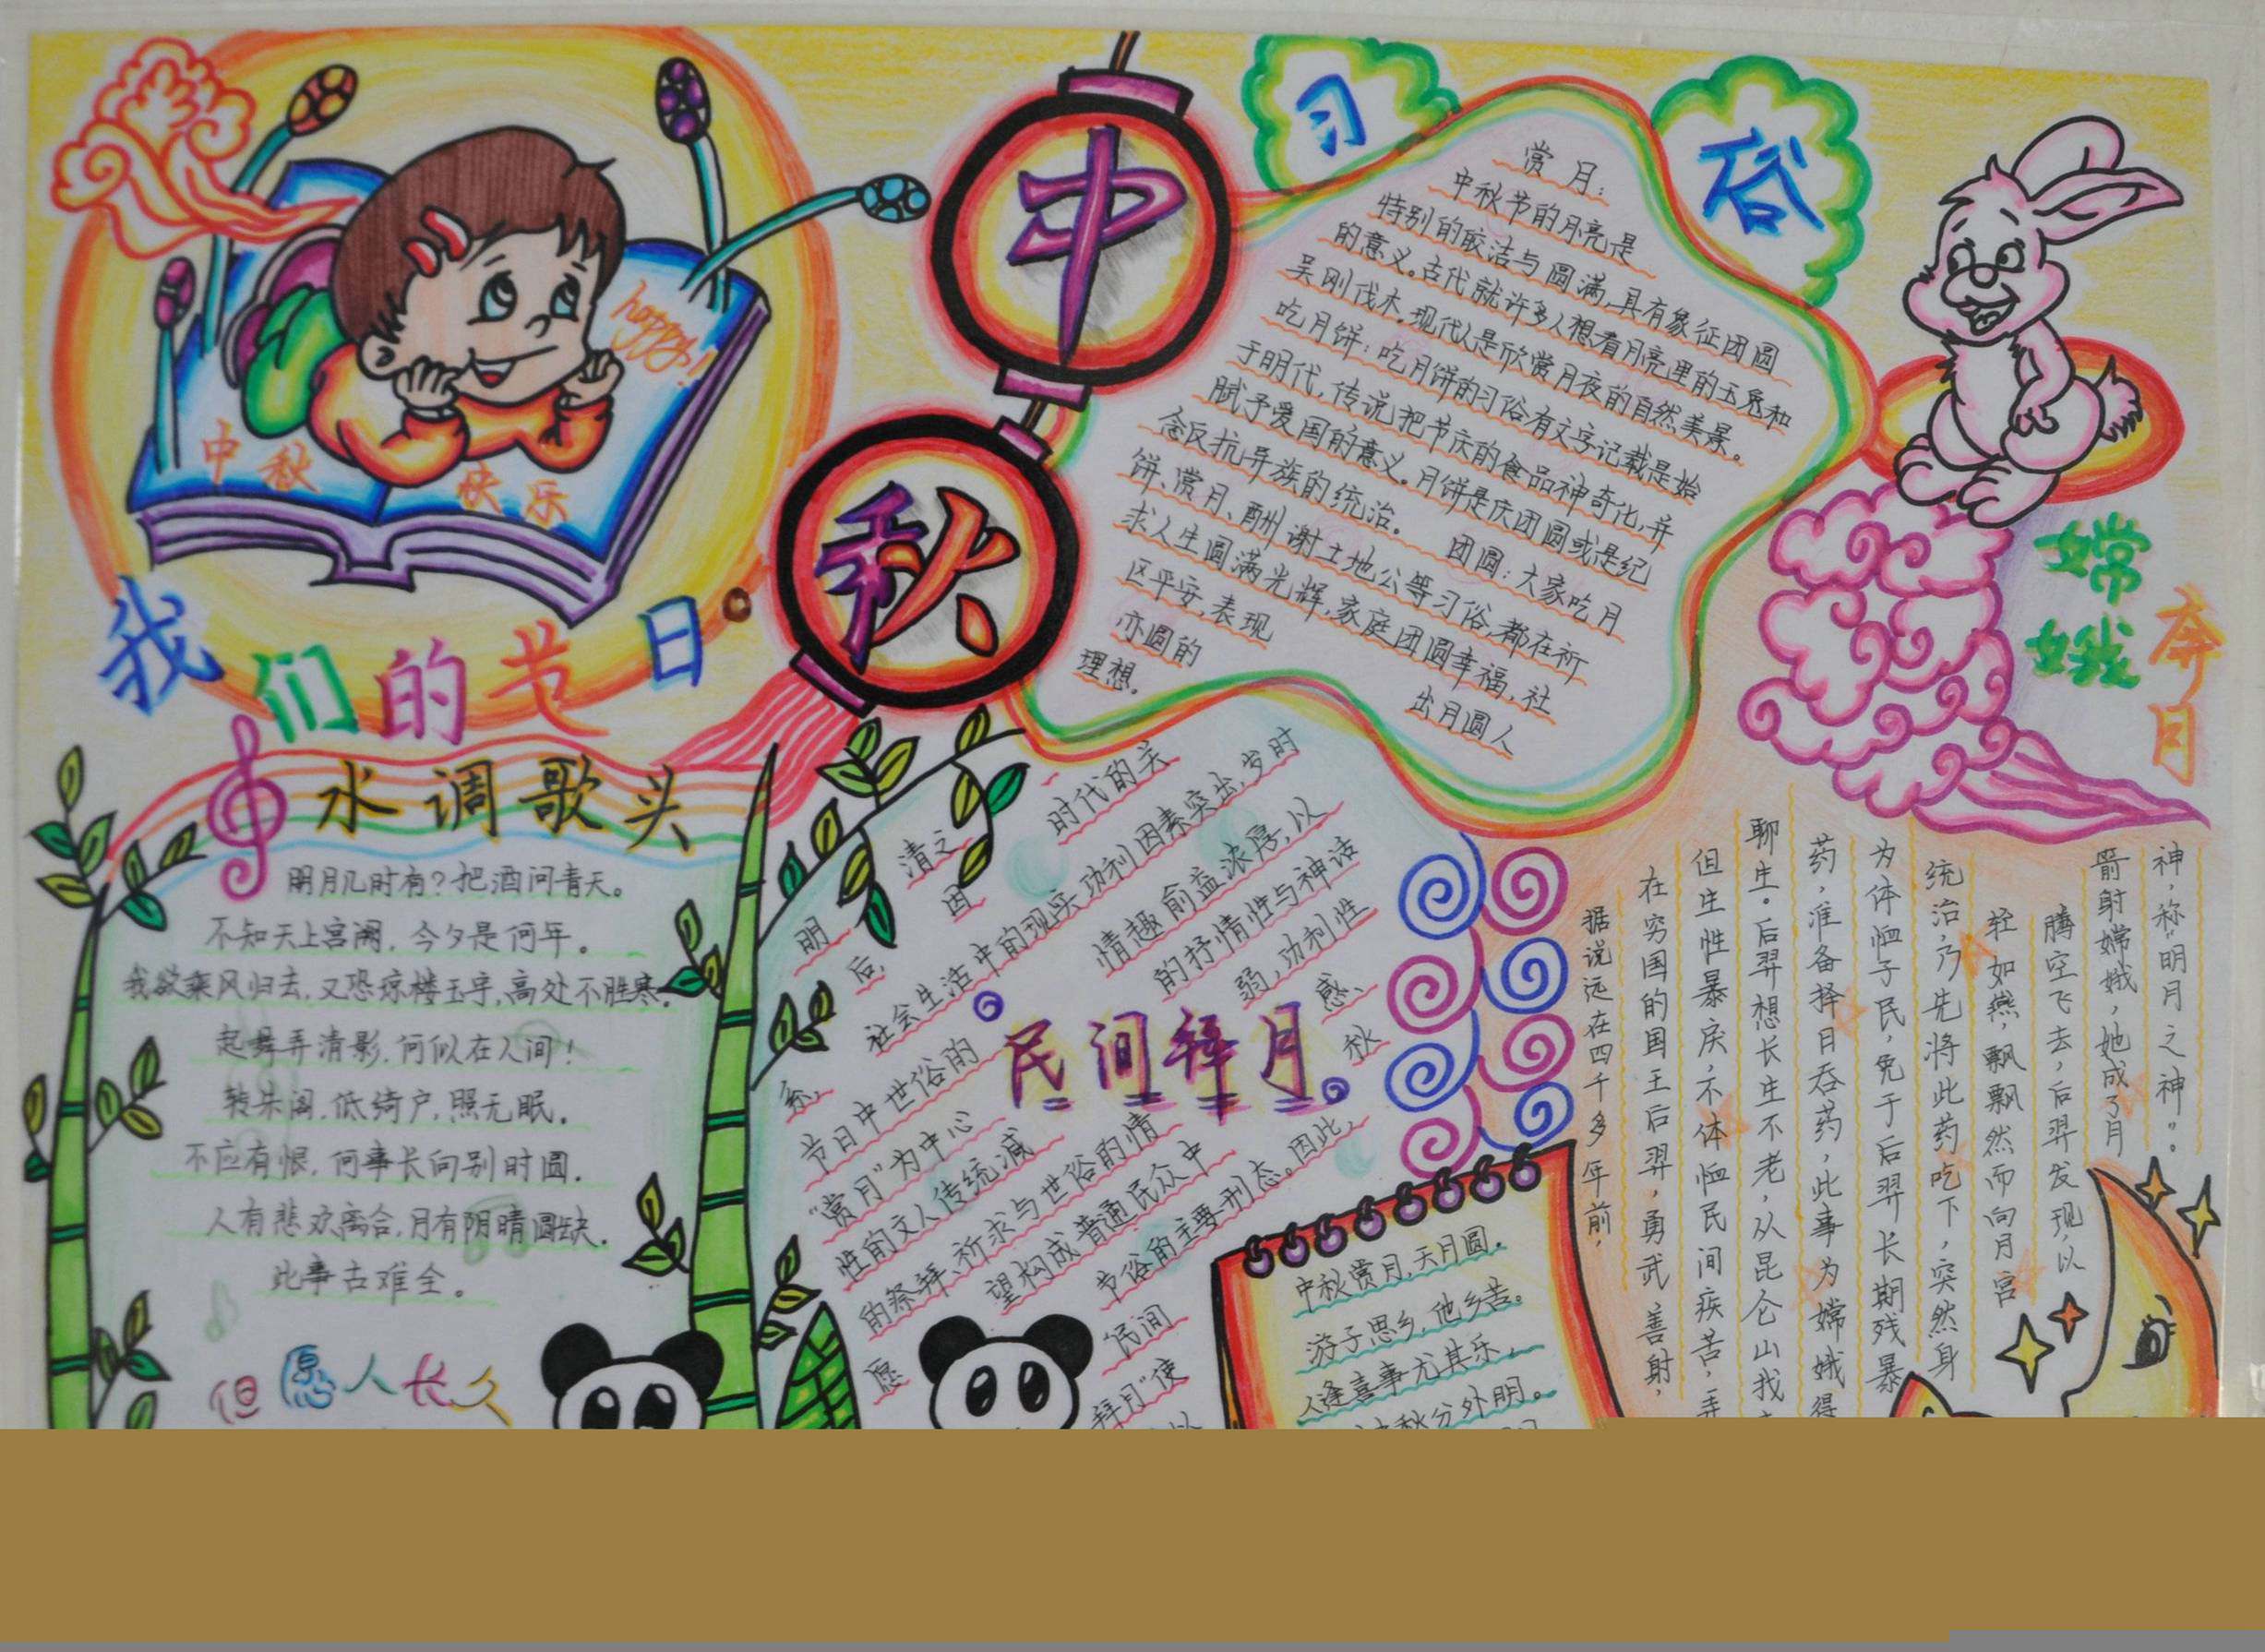 中秋
快乐
happy!
我们的节日
中
秋
习俗
赏月：
中秋节的月亮是
特别的皎洁与圆满,具有象征团圆
的意义。古代就许多人想看月亮里的玉兔和
吴刚伐木。现代人是欣赏月夜的自然美景。
吃月饼：吃月饼的习俗有文字记载是始
于明代，传说把节庆的食品神奇化,并
赋予爱国的意义。月饼是庆团圆或是纪
念反抗异族的统治。 团圆：大家吃月
饼、赏月、酬谢土地公等习俗,都在祈
求人生圆满光辉,家庭团圆幸福,社
区平安,表现
出月圆人
亦圆的
理想。
嫦娥
奔月
水调歌头
明月几时有？把酒问青天。
不知天上宫阙，今夕是何年。
我欲乘风归去,又恐琼楼玉宇,高处不胜寒。
起舞弄清影,何似在人间！
转朱阁,低绮户,照无眠。
不应有恨,何事长向别时圆.
人有悲欢离合,月有阴晴圆缺.
此事古难全。
但愿人长久
民间拜月。
明
清之
后,
因
时代的关
系,
社会生活中的现实功利因素突出,岁时
节日中世俗的
情趣俞益浓厚,以
“赏月”为中心
的抒情性与神话
性的文人传统减
弱,功利性
的祭拜、祈求与世俗的情
感、
愿
望构成普通民众中
秋
节俗的主要形态。因此,
“民间
拜月”使
中秋赏月,天月圆.
游子思乡,他乡苦。
人逢喜事尤其乐,
秋分外明。
据说远在四千多年前，
在穷国的国王后羿，勇武善射，
但生性暴戾,不体恤民间疾苦，弄
聊生。后羿想长生不老，从昆仑山找
药，准备择日吞药，此事为嫦娥得
为体恤子民，免于后羿长期残暴
统治，乃先将此药吃下，突然身
轻如燕，飘飘然而向月宫
腾空飞去，后羿发现,以
箭射嫦娥，她成了月
神，称“明月之神”。